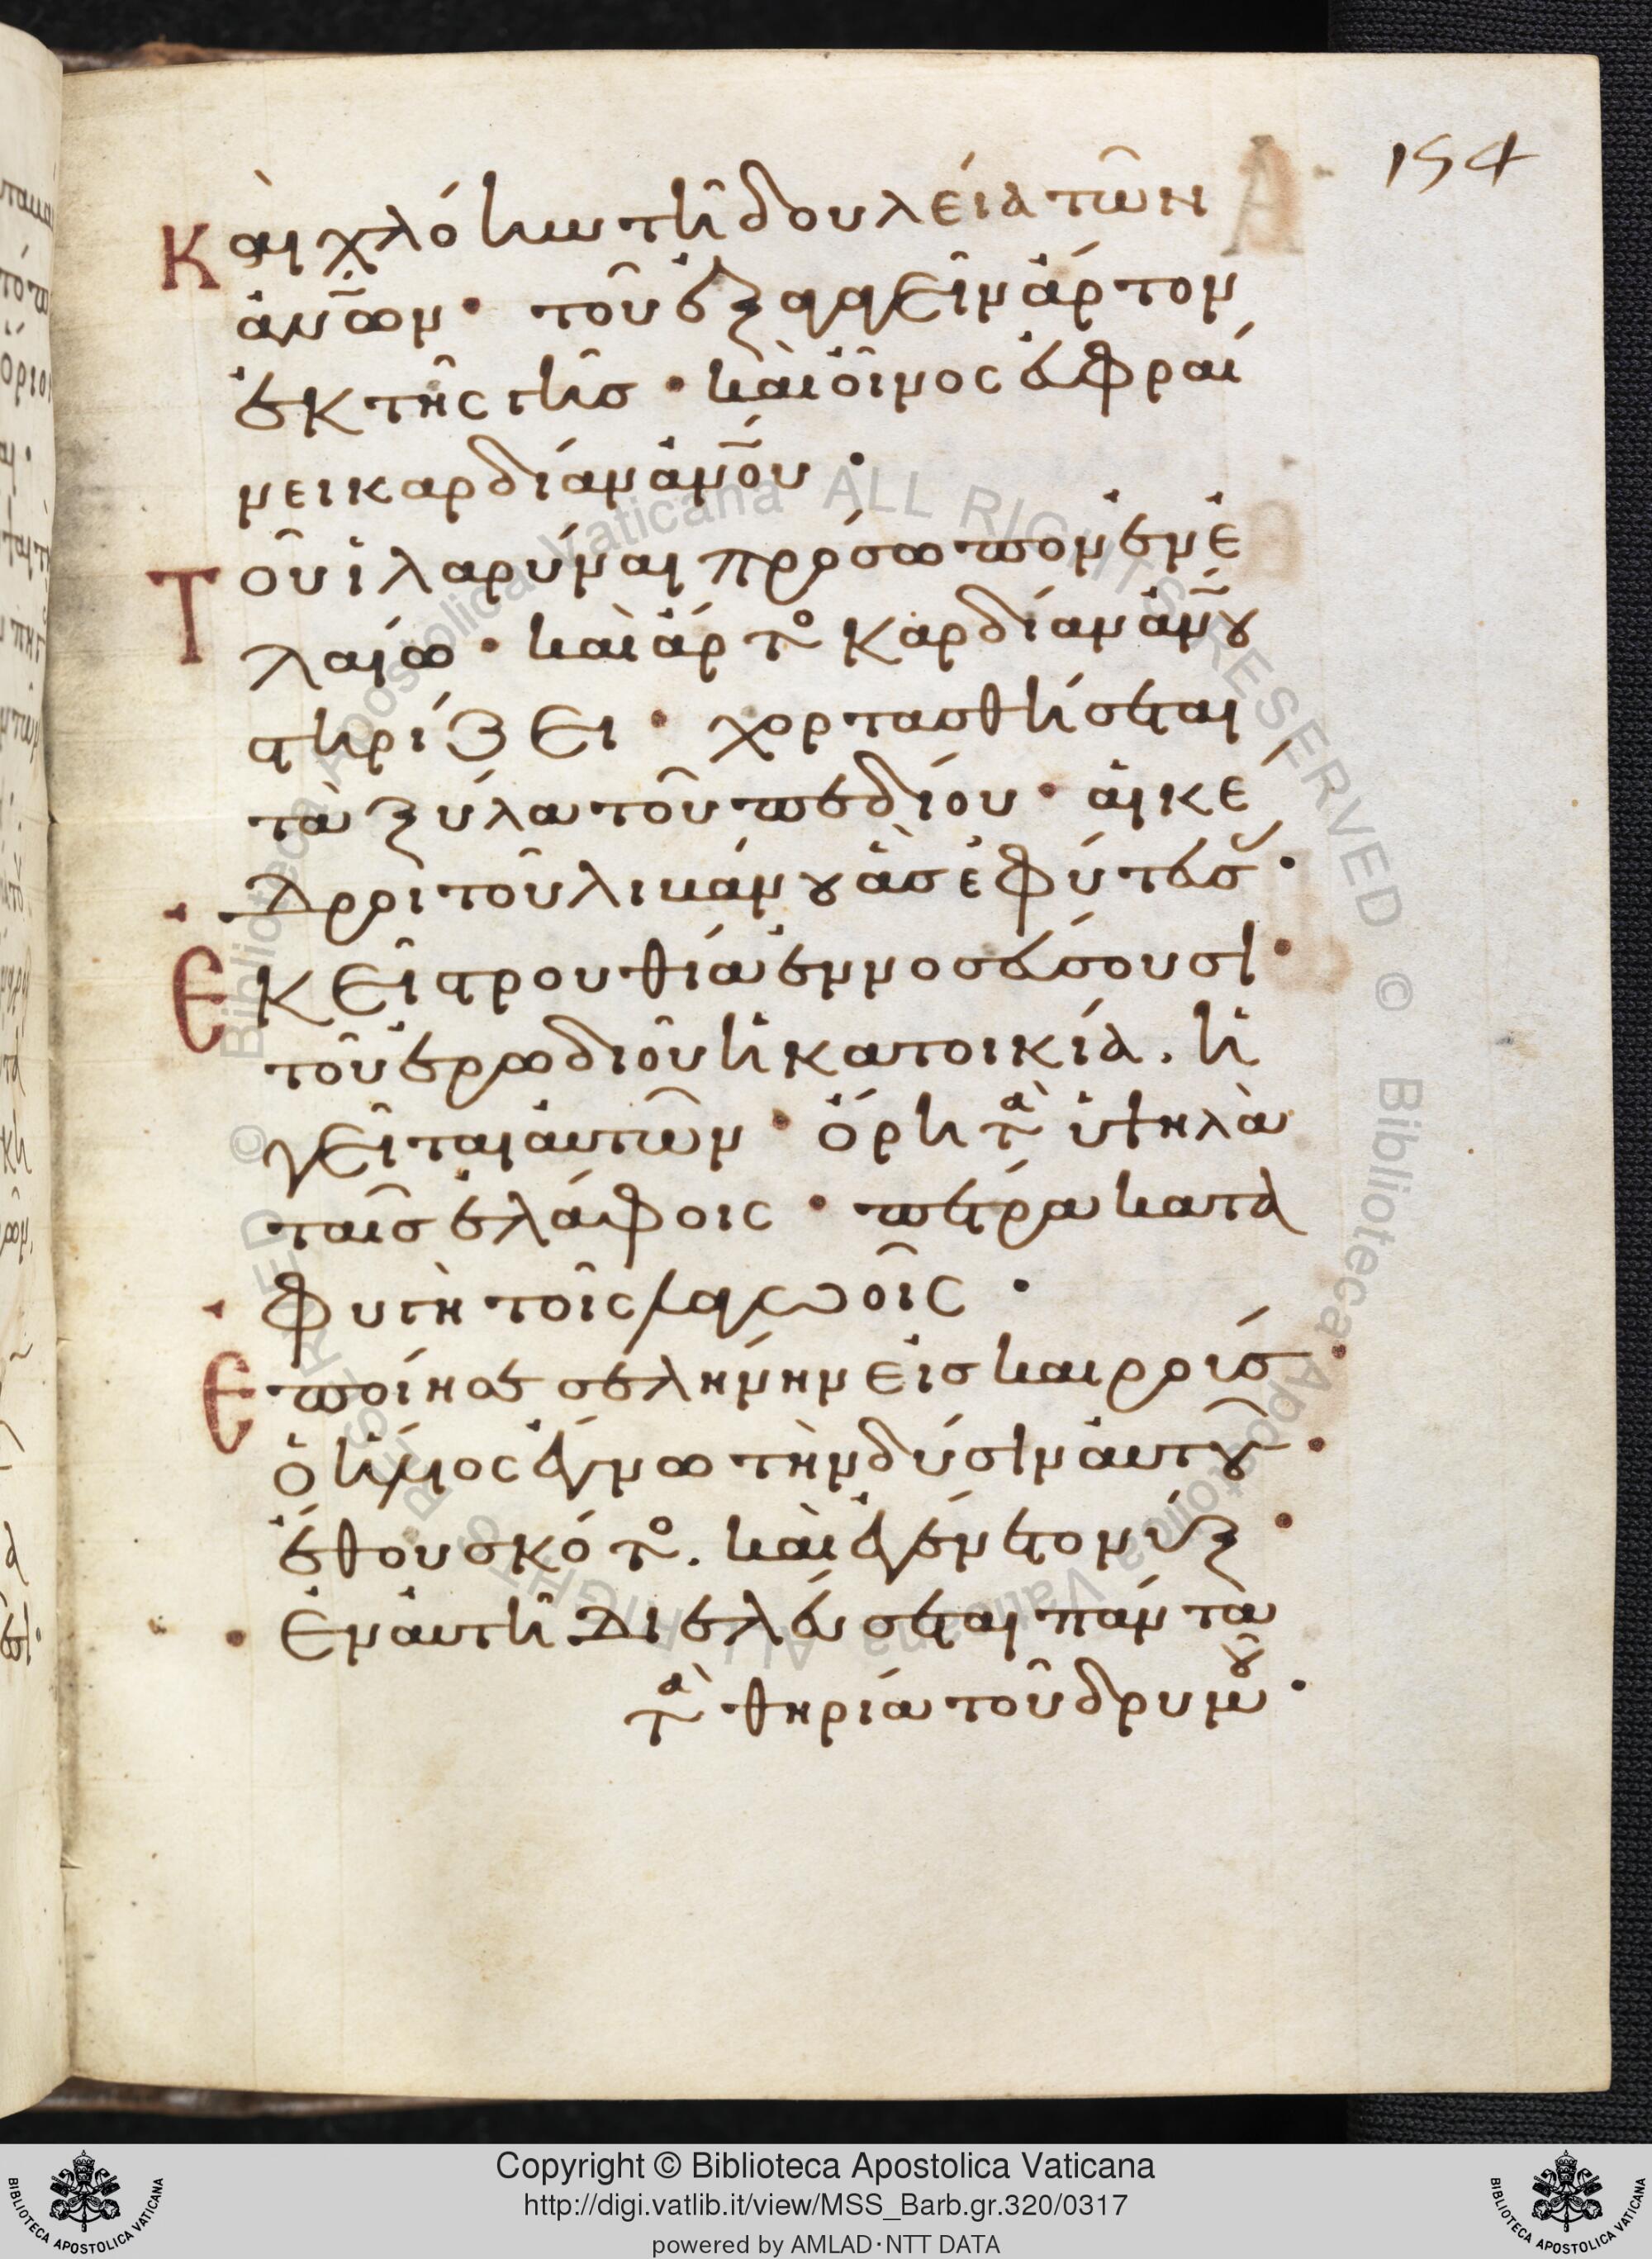 154
Καὶ χλόην τῆ δουλεία τῶν
ἀν̅ων· τοῦ ἐξαγαγεῖν ἄρτον
ἐκ τῆς γῆσ· καὶ οἶνος ἐυφραί
νει καρδίαν ἀν̅ου·
Τοῦ ἱλαρύναι πρόσωπον ἐν ἐ
λαίω· καὶ ἄρτο καρδίαν ἀν̅ου
στηρίζει· χορτασθήσεται
τὰ ξύλα τοῦ πεδίου· ἁι κέ
δροι τοῦ λιβάνου ἃσ ἐφύτευσ·
Ἐκεῖ στρουθία ἐννοσεύσουσι·
τοῦ ἐρωδιοῦ ἡ κατοικία. ἡ
γεῖται ἀυτῶν· ὄρη τὰ ὑψηλὰ
ταῖσ ἐλάφοις· πέτρα κατα
φυγὴ τοῖς λαγωοῖς·
Ἐποίησε σελήνην εἰσ καιρούσ·
ὁ ἥλιος ἔγνω τὴν δύσιν ἀυτοῦ·
ἔθου σκότο. καὶ ἐγένετο νύξ·
Ἐν ἀυτῆ διελεύσεται πάντα
τὰ θηρία τοῦ δρυμοῦ·
© Biblioteca Apostolica Vaticana ALL RIGHTS RESERVED © Biblioteca Apostolica Vaticana ALL RIGHTS RESERVED
Copyright © Biblioteca Apostolica Vaticana
http://digi.vatlib.it/view/MSS_Barb.gr.320/0317
powered by AMLAD·NTT DATA
BIBLIOTECA APOSTOLICA VATICANA
BIBLIOTECA APOSTOLICA VATICANA